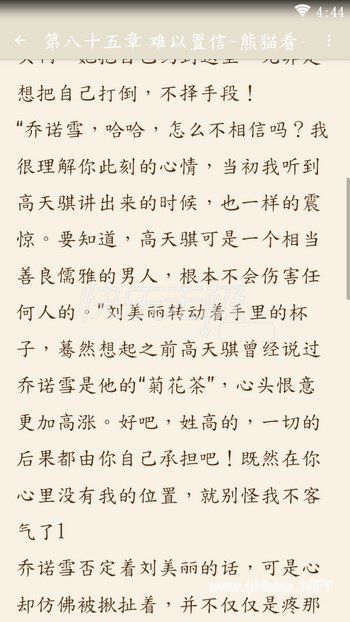 4:44
第八十五章 难以置信-熊猫看
想把自己打倒，不择手段！
“乔诺雪，哈哈，怎么不相信吗？我
很理解你此刻的心情，当初我听到
高天骐讲出来的时候，也一样的震
惊。要知道，高天骐可是一个相当
善良儒雅的男人，根本不会伤害任
何人的。”刘美丽转动着手里的杯
子，蓦然想起之前高天骐曾经说过
乔诺雪是他的“菊花茶”，心头恨意
更加高涨。好吧，姓高的，一切的
后果都由你自己承担吧！既然在你
心里没有我的位置，就别怪我不客
气了1
乔诺雪否定着刘美丽的话，可是心
却仿佛被揪扯着，并不仅仅是疼那